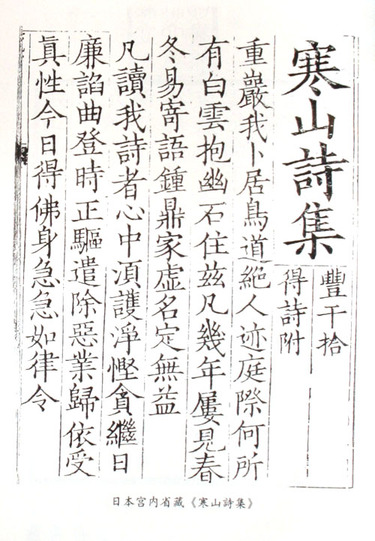 寒山詩集
豐干拾
得詩附
重巖我卜居鳥道絶人迹庭際何所
有白雲抱幽石住茲凡幾年屢見春
冬易寄語鍾鼎家虛名定無益
凡讀我詩者心中湏護淨慳貪繼日
廉謟曲登時正驅遣除惡業歸依受
眞性今日得佛身急急如律令
日本宫内省藏《寒山詩集》